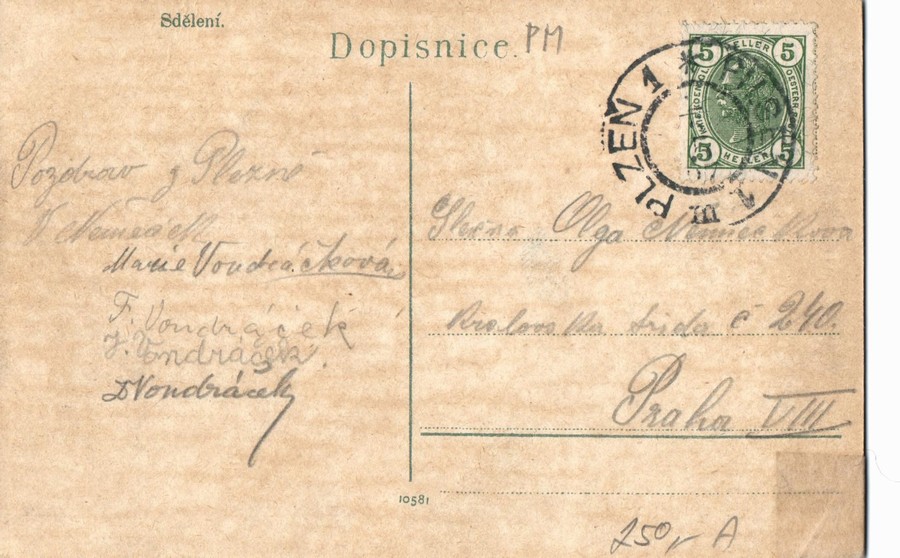 Sdělení.
Dopisnice.
PM
5 HELLER 5
5 HELLER 5
PLZEN 1 * PILSEN 1
III
Pozdrav z Plezně
V Němeáček
Marie Vondráčková
F. Vondráček
J. Vondráček.
D Vondráček
Slečna Olga Němečkova
Kralovska trida č 240.
Praha VIII
10581
250,- A